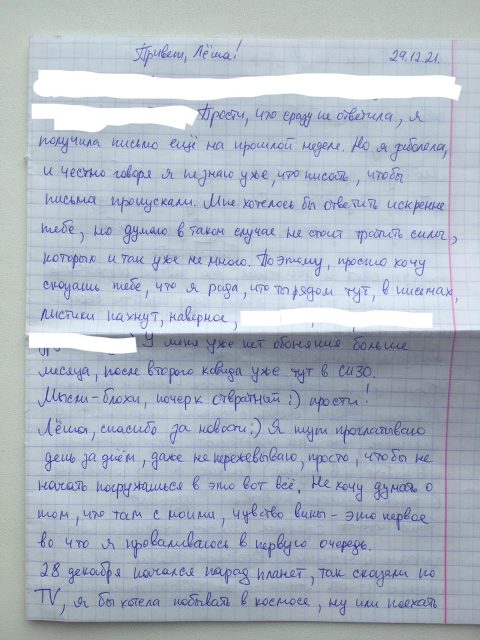 Привет, Лёша! 29.12.21.
Прости, что сразу не ответила, я
получила письмо ещё на прошлой неделе. Но я заболела,
и честно говоря я не знаю уже, что писать, чтобы
письма пропускали. Мне хотелось бы ответить искренне
тебе, но думаю в таком случае не стоит тратить силы,
которых и так уже не много. Поэтому, просто хочу
сказать тебе, что я рада, что ты рядом тут, в письмах,
листики пахнут, наверное,
У меня уже нет обоняния больше
месяца, после второго ковида уже тут в СИЗО.
Мысли-блохи, почерк отвратный :) прости!
Лёша, спасибо за новости :) Я тут проглатываю
день за днём, даже не пережёвываю, просто, чтобы не
начать погружаться в это вот всё. Не хочу думать о
том, что там с моими, чувство вины - это первое
во что я проваливаюсь в первую очередь.
28 декабря начался парад планет, так сказали по
TV, я бы хотела побывать в космосе, ну или поехать